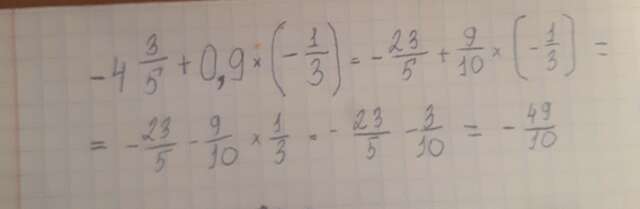 -4 3/5 + 0,9 × (-1/3) = -23/5 + 9/10 × (-1/3) =
= -23/5 - 9/10 × 1/3 = -23/5 - 3/10 = -49/10